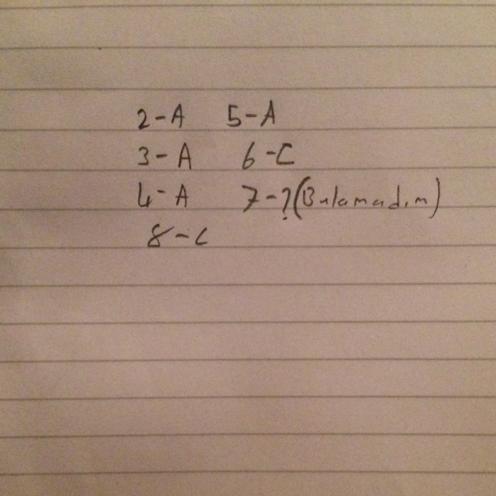 2-A 5-A
3-A 6-C
4-A 7-?(Bulamadım)
8-C